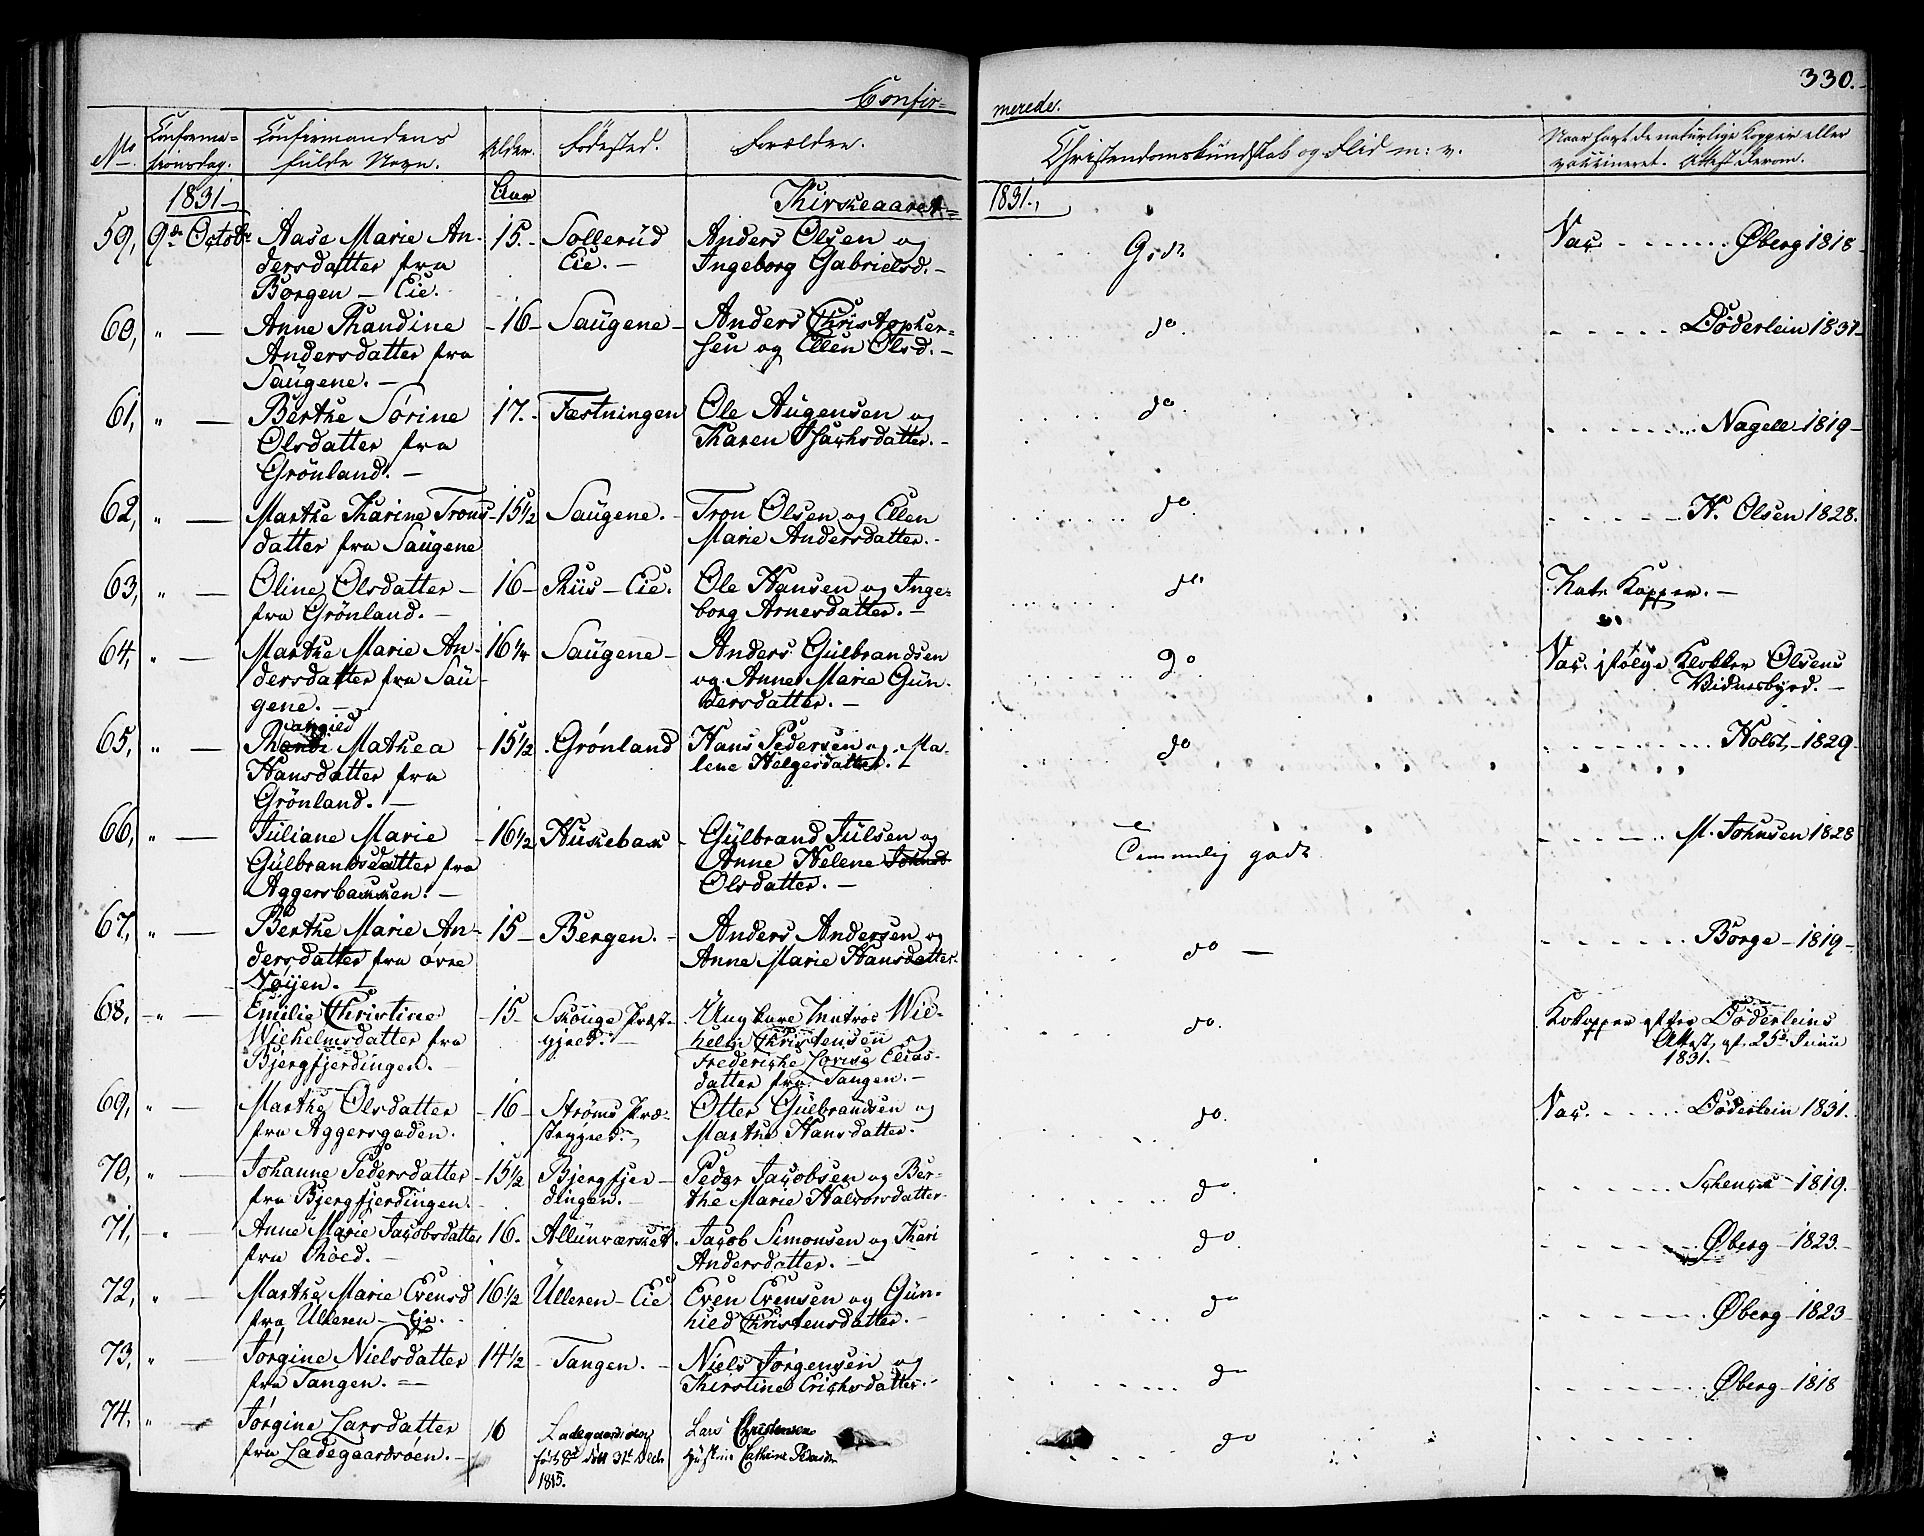 330.
Confir=
merede.
No
Confirma=
tionsdag.
Confirmandens
fulde Navn.
Alder.
Fødested.
Forældre.
Christendomskundskab og Flid m: v.
Naar havt de naturlige Kopper eller
vaccineret. Attest derom.
1831
Aar
Kirkeaaret
1831.
59, 9de Octobr Aase Marie An= 15. Sollerud Anders Olsen og Godt Vac. Øberg 1818
dersdatter fra Eie. Ingeborg Gabrielsd.
Borgen Eie.
60, " Anne Randine 16 Saugene Anders Christopher= do. Döderlein 1831
Andersdatter fra sen og Ellen Olsd.
Saugene.
61, " Berthe Sørine 17. Fæstningen Ole Augensen og do. Nagell 1819
Olsdatter fra Karen Isachsdatter.
Grönland.
62, " Marthe Karine Trons 15 1/2 Saugene. Tron Olsen og Ellen do. H. Olsen 1828.
datter fra Saugene Marie Andersdatter.
63, " Oline Olsdatter 16 Riis Eie. Ole Hansen og Inge= do Havt Kopper.
fra Grönland. borg Arnesdatter.
64, " Marthe Marie An= 16 1/4 Saugene Anders Gulbrandsen do Vac. ifølge Klokker Olsens
dersdatter fra Sau= og Anne Marie Gun= Vidnesbyrd.
gene. dersdatter.
65, " Mathea 15 1/2 Grönland Hans Pedersen og Ma= do Holst 1829
Hansdatter fra lene Helgesdatter.
Grönland.
66, " Juliane Marie 16 1/2 Huskebak Gulbrand Julsen og Temmelig godt M. Johnsen 1828
Gulbrandsdatter fra Anne Helene
Aggersbakken. Olsdatter.
67, " Berthe Marie An= 15 Bergen. Anders Andersen og do Borge 1819
dersdatter fra øvre Anne Marie Hansdatter
Vøyen.
68, " Emilie Christine 15 Skouge Præst= Ungkarl Wil= do. Kokopper efter Döderleins
Wilhelmsdatter fra gjæld. helm Christensen og Attest af 25de Juni
Bjergfjerdingen. Frederikke Lovise Elias= 1831.
datter fra Tangen.
69, " Marthe Olsdatter 16 Strøms Præ= Otter Gulbrandsen og do. Vac. Döderlein 1831.
fra Aggersgaden. stegjæld. Marthe Hansdatter.
70, " Johanne Pedersdatter 15 1/2 Bjergfjer= Peder Jacobsen og Ber= do. Schenck 1819.
fra Bjergfjerdingen. dingen. the Marie Halvorsdatter
71, " Anne Marie Jacobsdatter 16. Allunværket. Jacob Simonsen og Kari do. Øberg 1823.
fra Røed. Andersdatter.
72, " Marthe Marie Evensd 16 1/2 Ulleren Eie Even Evensen og Gun= do Øberg 1823
fra Ulleren Eje. hild Christensdatter.
73, " Jørgine Nielsdatter 14 1/2 Tangen. Niels Jørgensen og do Øberg 1818
fra Tangen. Kirstine Erichsdatter.
74, " Jørgine Larsdatter 16 Ladegaardsøen Lars Christensen do
fra Ladegaardsøen. født den 31te Decbr Cathrine
1815.